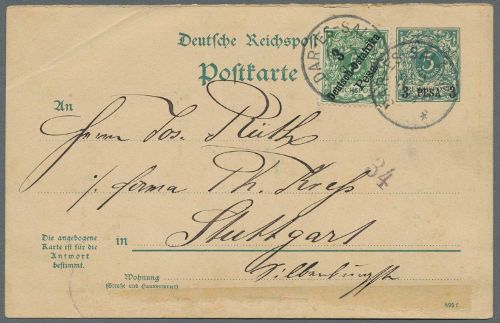 Deutsche Reichspost
Postkarte
3
Deutsch-Ostafrika
Pesa
DAR-ES-SA
5
3 PESA 3
An
Herrn Jos. Rüth
i/ firma Th. Kress
34
Stuttgart
in
Die angebogene
Karte ist für die
Antwort
bestimmt.
Wohnung
(Straße und Hausnummer)